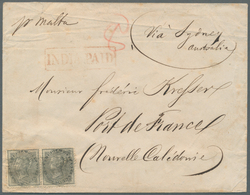 pr Malta
Via Sydney
australia
INDIA PAID
Monsieur frédéric Kresser
Port de France
(Nouvelle Calédonie)